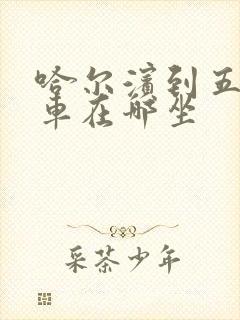 哈尔滨到五
车在哪坐
采茶少年